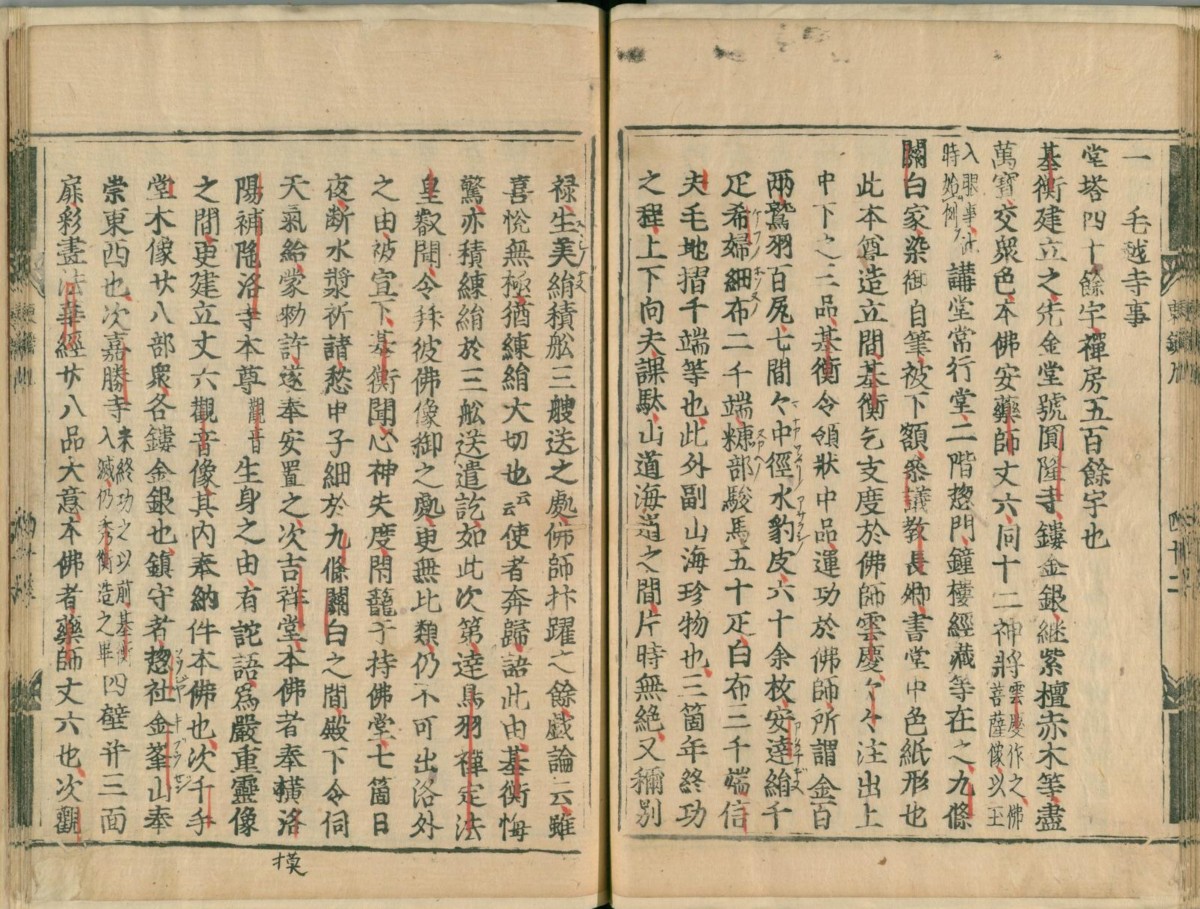 一 毛越寺事
堂塔四十餘宇禪房五百餘宇也
基衡建立之先金堂號圓隆寺鏤金銀継紫檀赤木等盡
萬寶交衆色本佛安藥師丈六同十二神將雲慶作之佛菩薩像以玉
入眼事此時始例講堂常行堂二階惣門鐘樓經藏等在之九條
關白家染御自筆被下額參議教長卿書堂中色紙形也
此本尊造立間基衡乞支度於佛師雲慶々々注出上
中下之三品基衡令領狀中品運功於佛師所謂金百
兩鷲羽百尻七間々中徑水豹皮六十余枚安達絹千
疋希婦細布二千端糠部駿馬五十疋白布三千端信
夫毛地摺千端等也此外副山海珍物也三箇年終功
之程上下向夫課駄山道海道之間片時無絶又稱別
禄生美絹積舩三艘送之處佛師抃躍之餘戯論云雖
喜悅無極猶練絹大切也云云使者奔歸語此由基衡悔
驚亦積練絹於三舩送遣訖如此次第達鳥羽禪定法
皇叡聞令拜彼佛像御之處更無此類仍不可出洛外
之由被宣下基衡聞心神失度閇籠于持佛堂七箇日
夜断水漿祈請愁申子細於九條關白之間殿下令伺
天氣給蒙勅許遂奉安置之次吉祥堂本佛者奉模洛
陽補陁洛寺本尊觀音生身之由有詫語爲嚴重靈像
之間更建立丈六觀音像其内奉納件本佛也次千手
堂木像廿八部衆各鏤金銀也鎮守者惣社金峯山奉
崇東西也次嘉勝寺未終功之以前基衡入滅仍秀衡造之畢四壁幷三面
扉彩畫法華經廿八品大意本佛者藥師丈六也次觀
模